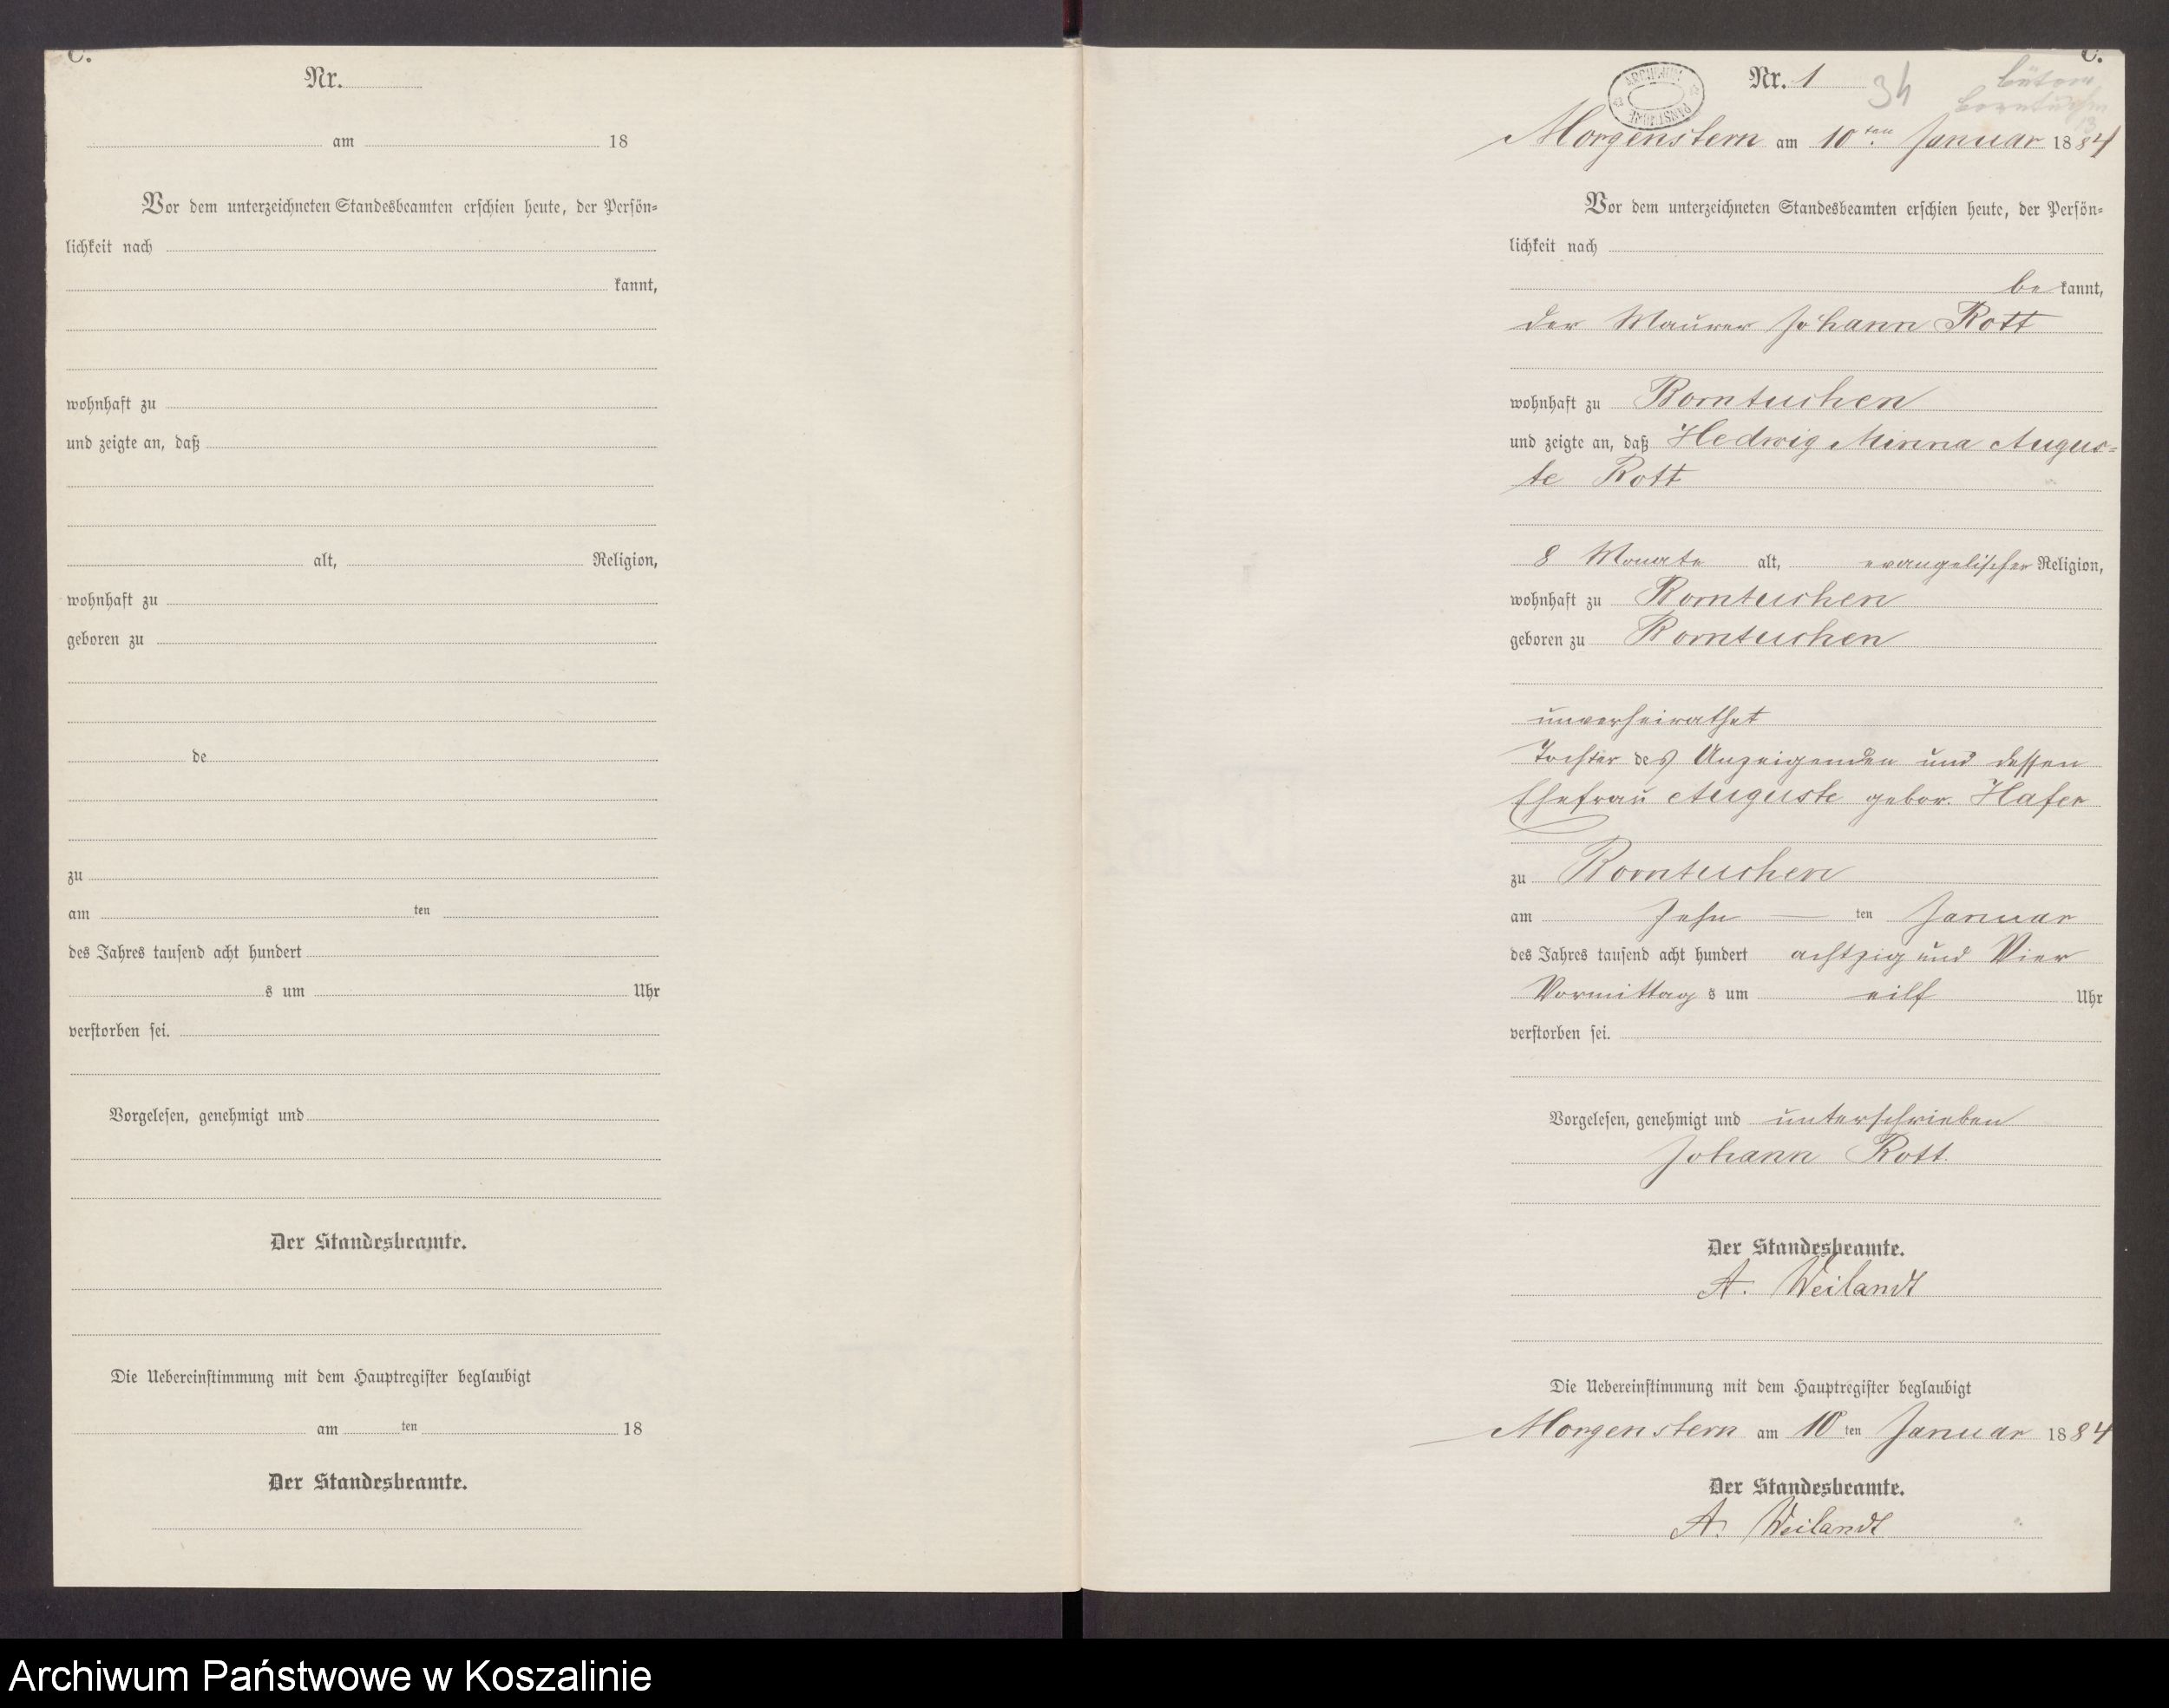 C.
Nr.
am 18
Vor dem unterzeichneten Standesbeamten erschien heute, der Persön-
lichkeit nach
kannt,
wohnhaft zu
und zeigte an, daß
alt, Religion,
wohnhaft zu
geboren zu
de
zu
am ten
des Jahres tausend acht hundert
s um Uhr
verstorben sei.
Vorgelesen, genehmigt und
Der Standesbeamte.
Die Uebereinstimmung mit dem Hauptregister beglaubigt
am ten 18
Der Standesbeamte.
C.
Nr. 1
Bütow
Borntuchen
Morgenstern am 10ten Januar 1884
Vor dem unterzeichneten Standesbeamten erschien heute, der Persön-
lichkeit nach
be kannt,
der Maurer Johann Rott
wohnhaft zu Borntuchen
und zeigte an, daß Hedwig Minna Augus-
te Rott
8 Monate alt, evangelischer Religion,
wohnhaft zu Borntuchen
geboren zu Borntuchen
unverheirathet
Tochter des Anzeigenden und dessen
Ehefrau Auguste gebor. Hafer
zu Borntuchen
am Zehn — ten Januar
des Jahres tausend acht hundert achtzig und Vier
Vormittag s um eilf Uhr
verstorben sei.
Vorgelesen, genehmigt und unterschrieben
Johann Rott.
Der Standesbeamte.
A. Weilandt
Die Uebereinstimmung mit dem Hauptregister beglaubigt
Morgenstern am 10ten Januar 1884
Der Standesbeamte.
A. Weilandt
Archiwum Państwowe w Koszalinie